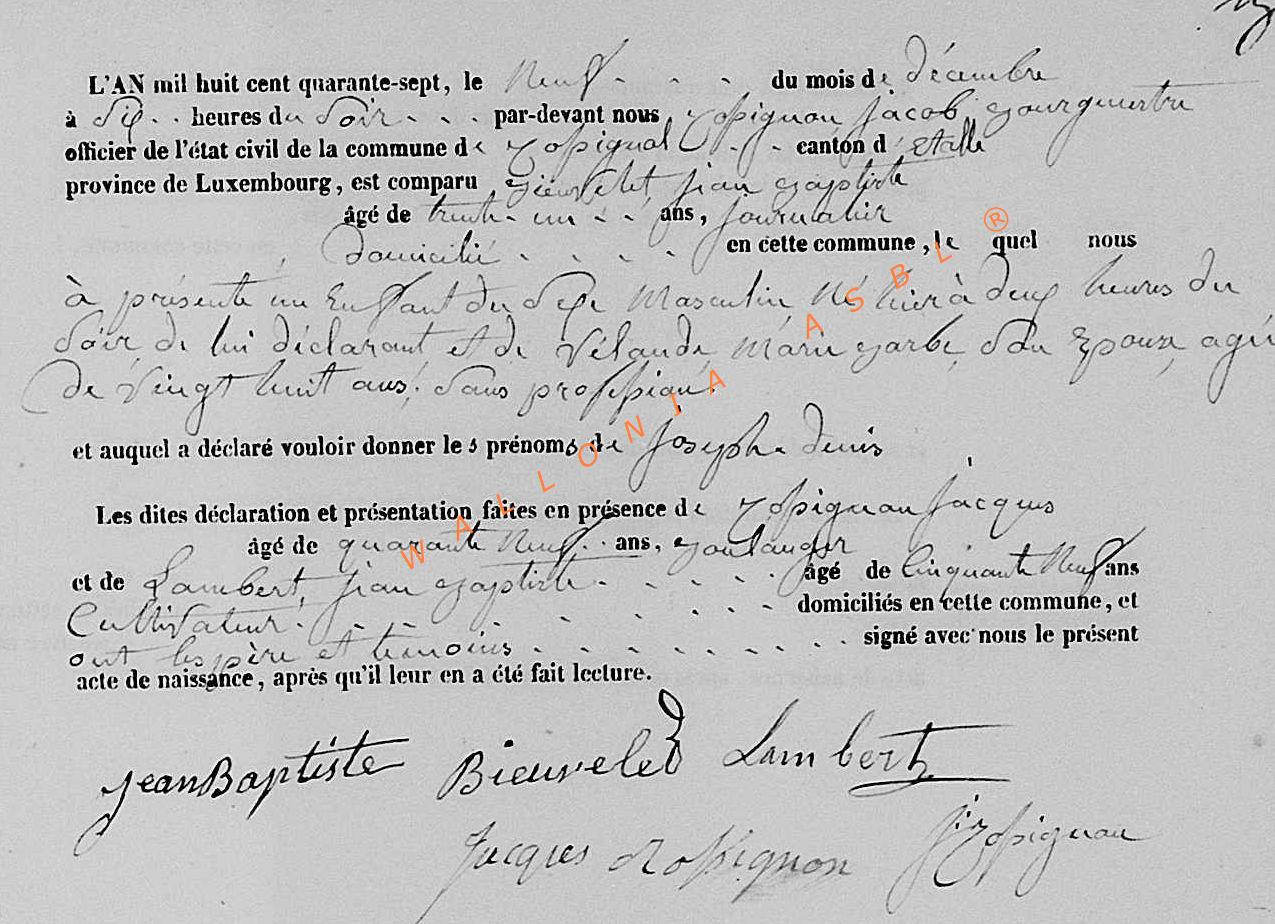 L'AN mil huit cent quarante-sept, le Neuf du mois de décembre
à Six heures du Soir par-devant nous, Rossignon Jacob, Bourgmestre
officier de l'état civil de la commune de Rossignol canton d'Etalle
province de Luxembourg, est comparu, Bieuvelet jean Baptiste
âgé de trente-un ans, journalier
, Domicilié en cette commune, le quel nous
à présenté un Enfant du Sexe Masculin, Né hier à deux heures du
Soir, de lui déclarant et de Marie Barbe, Son Epouse, agée
de Vingt huit ans, Sans profession.
et auquel a déclaré vouloir donner les prénoms de joseph denis
Les dites déclaration et présentation faites en présence de Rossignon jacques
âgé de quarante Neuf ans, Boulanger
et de Lambert, jean Baptiste âgé de Cinquante Neuf ans
Cultivateur domiciliés en cette commune, et
ont les père et temoins signé avec nous le présent
acte de naissance, après qu'il leur en a été fait lecture.
jeanBaptiste Bieuvelet Lambert
jacques Rossignon J. Rossignon
WALLONIA ASBL ®